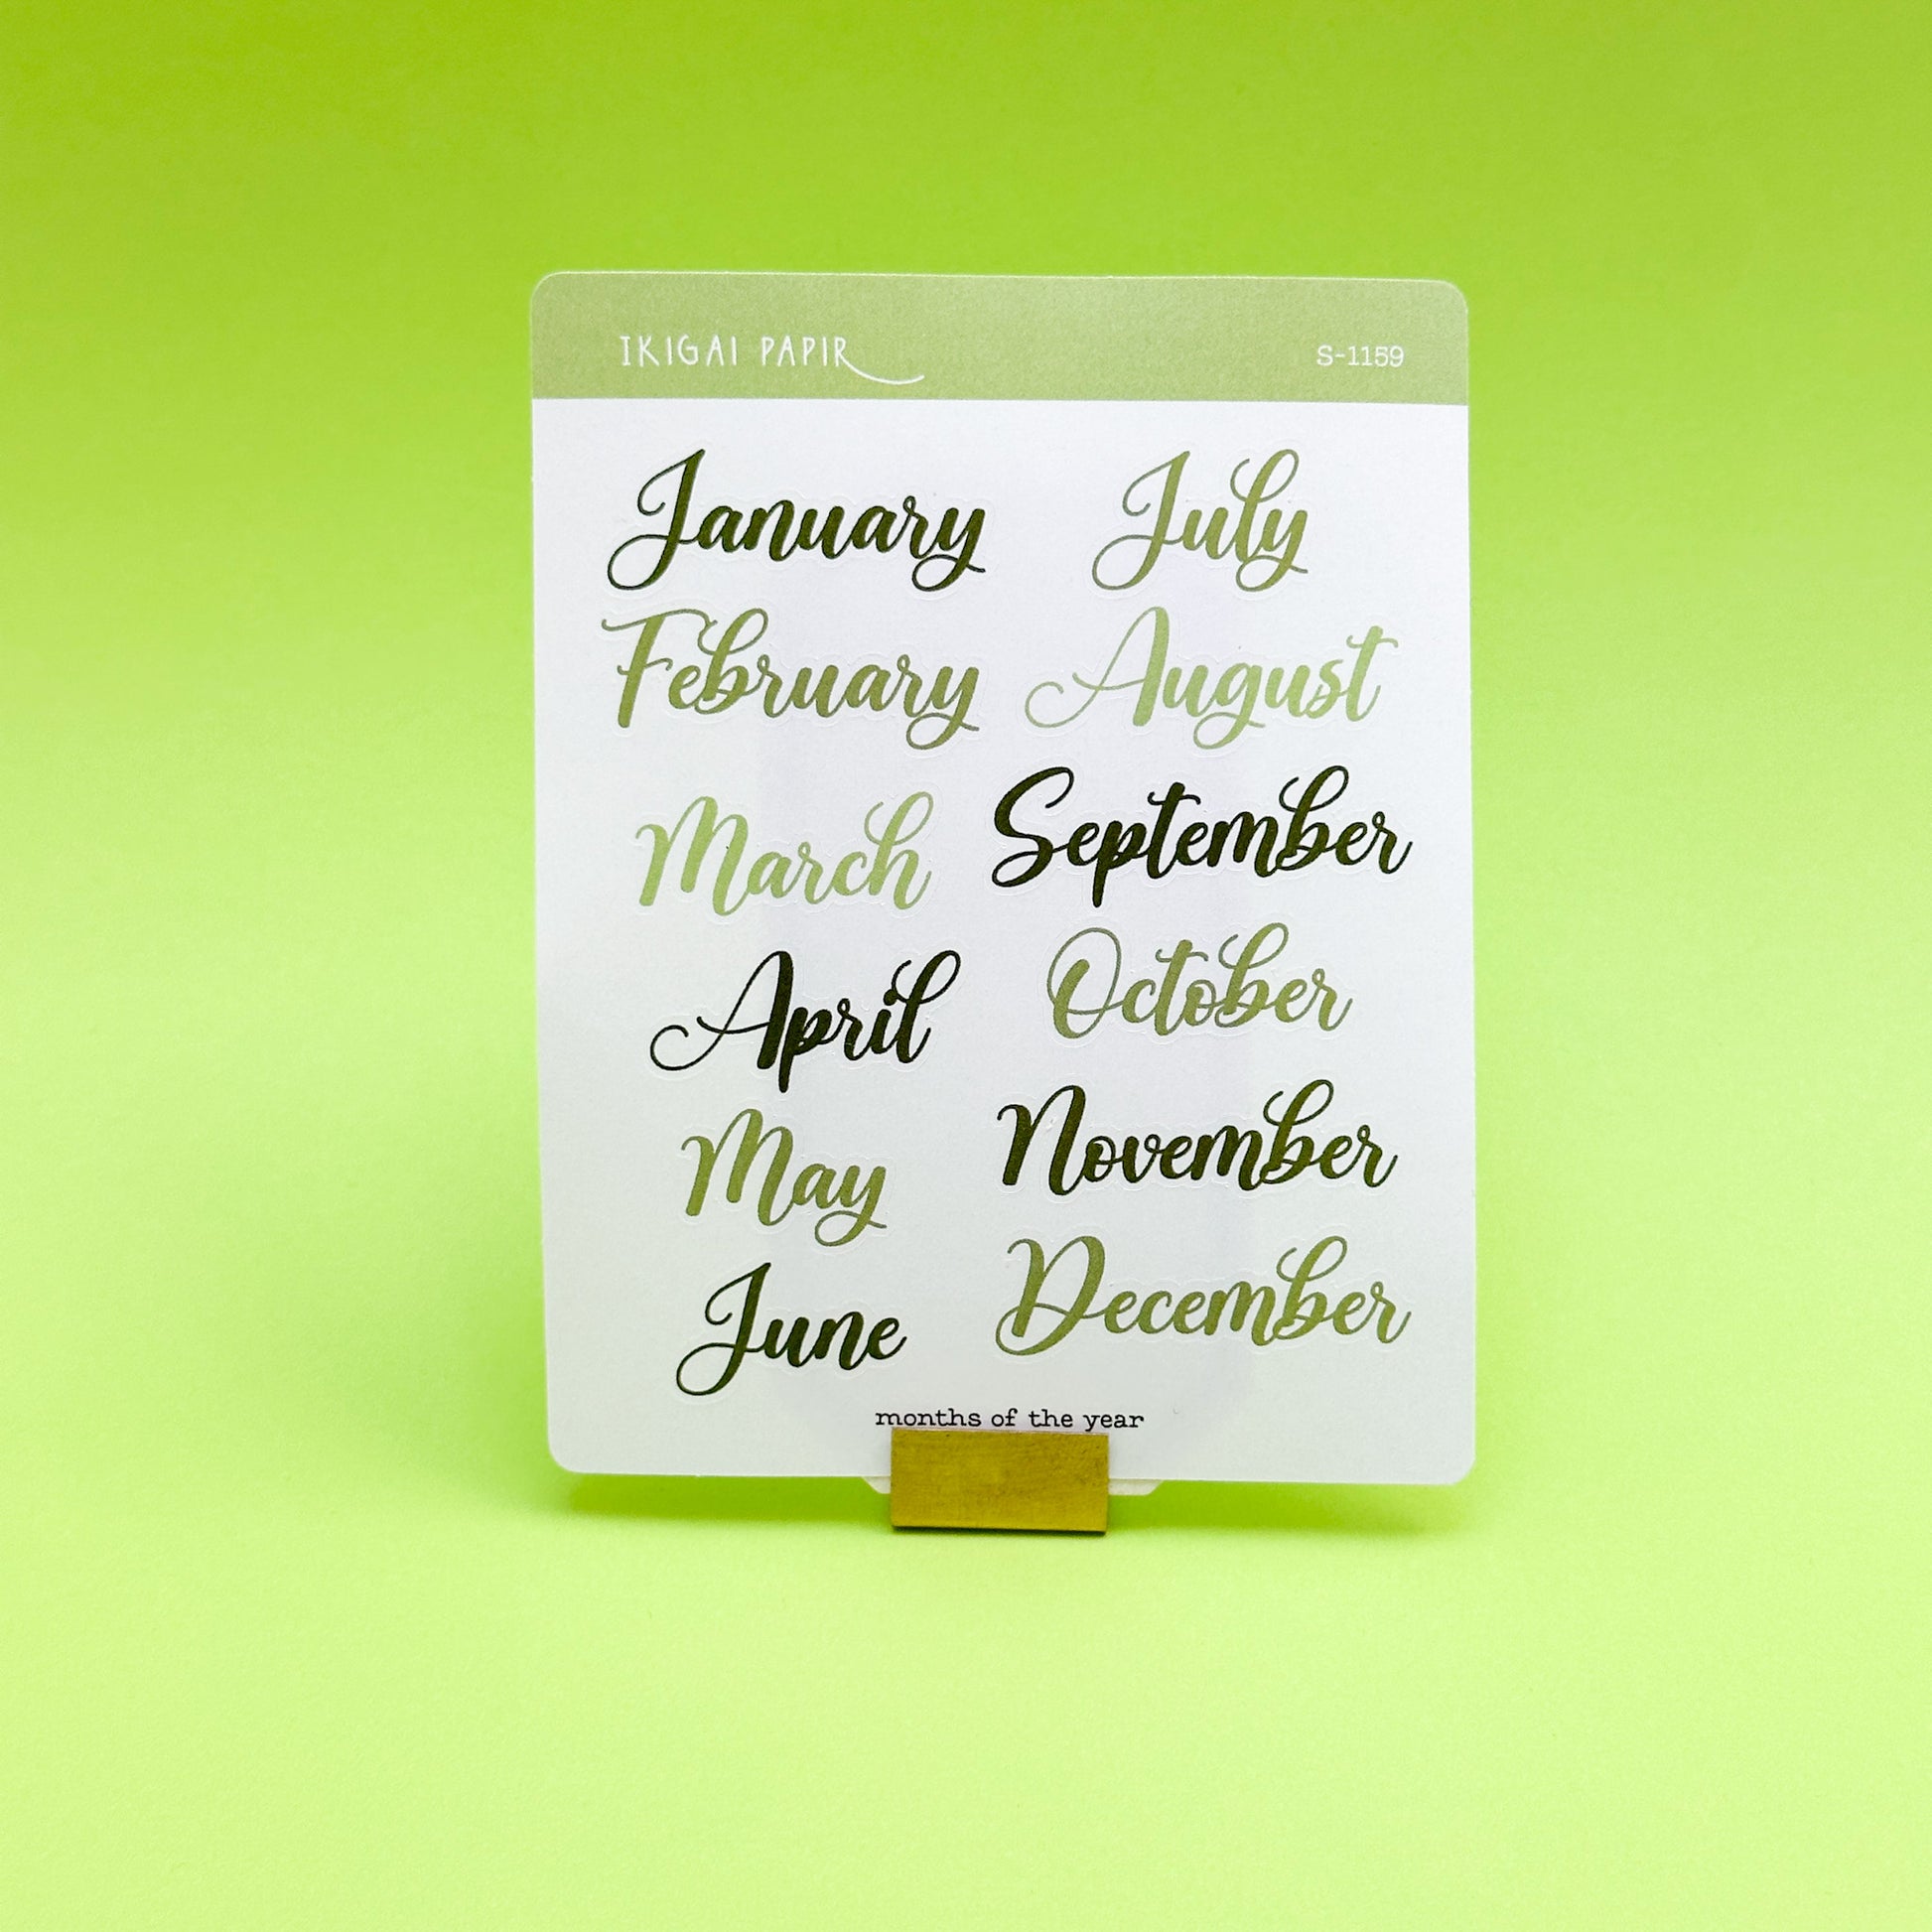 IKIGAI PAPIR
S-1159
January
February
March
April
May
June
July
August
September
October
November
December
months of the year